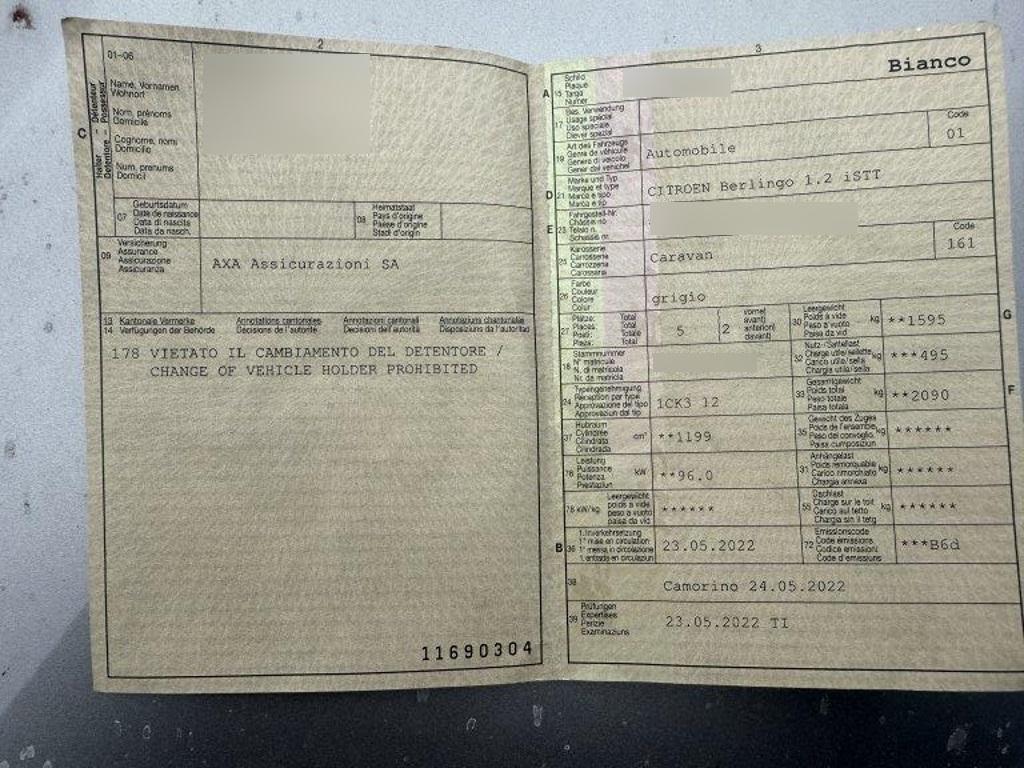 2
01-06
C
Halter - Détenteur
Detentore - Possessur
Name, Vornamen
Wohnort
Nom, prénoms
Domicile
Cognome, nomi
Domicilio
Num, prenums
Domicil
07
Geburtsdatum
Date de naissance
Data di nascita
Data da nasch.
08
Heimatstaat
Pays d'origine
Paese d'origine
Stadi d'origin
09
Versicherung
Assurance
Assicurazione
Assicuranza
AXA Assicurazioni SA
13 Kantonale Vermerke Annotations cantonales Annotazioni cantonali Annotaziuns chantunalas
14 Verfügungen der Behörde Décisions de l'autorité Decisioni dell'autorità Disposiziuns da l'autoritad
178 VIETATO IL CAMBIAMENTO DEL DETENTORE /
CHANGE OF VEHICLE HOLDER PROHIBITED
11690304
3
Bianco
A 15
Schild
Plaque
Targa
Numer
17
Bes. Verwendung
Usage spécial
Uso speciale
Diever spezial
Code
01
19
Art des Fahrzeugs
Genre de véhicule
Genere di veicolo
Gener dal vehichel
Automobile
D 21
Marke und Typ
Marque et type
Marca e tipo
Marca e tip
CITROEN Berlingo 1.2 iSTT
E 23
Fahrgestell-Nr.
Châssis no
Telaio n.
Schassis nr.
25
Karosserie
Carrosserie
Carrozzeria
Carossaria
Caravan
Code
161
26
Farbe
Couleur
Colore
Colur
grigio
27
Plätze: Total
Places: Total
Posti: Totale
Plazs: Total
5
vorne
avant
anteriori
davant
2
G
30
Leergewicht
Poids à vide
Peso a vuoto
Paisa da vid
kg
**1595
18
Stammnummer
N° matricule
N. di matricola
Nr. da matricla
32
Nutz-/Sattellast
Charge utile/sellette
Carico utile/sella
Chargia utila/sella
kg
***495
24
Typengenehmigung
Réception par type
Approvazione del tipo
Approvaziun dal tip
1CK3 12
F
33
Gesamtgewicht
Poids total
Peso totale
Paisa totala
kg
**2090
37
Hubraum
Cylindrée
Cilindrata
Cilindrada
cm³
**1199
35
Gewicht des Zuges
Poids de l'ensemble
Peso del convoglio
Paisa cumposiziun
kg
******
76
Leistung
Puissance
Potenza
Prestaziun
kW
**96.0
31
Anhängelast
Poids remorquable
Carico rimorchiato
Chargia annexa
kg
******
78 kW/kg
Leergewicht
poids à vide
peso a vuoto
paisa da vid
******
55
Dachlast
Charge sur le toit
Carico sul tetto
Chargia sin il tetg
kg
******
B 36
1. Inverkehrsetzung
1re mise en circulation
1a messa in circolazione
1. entrada en circulaziun
23.05.2022
72
Emissionscode
Code émissions
Codice emissioni
Code d'emissiuns
***B6d
38
Camorino 24.05.2022
39
Prüfungen
Expertises
Perizie
Examinaziuns
23.05.2022 TI